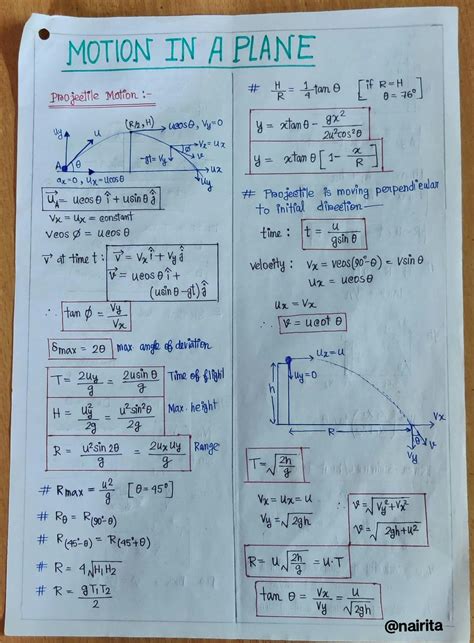 MOTION IN A PLANE
Projectile Motion :-
uy
u
(R/2, H)
ucosθ, Vy=0
A
θ
-gt=Vy
Vx=ux
v
ux
uy
ax=0, ux=ucosθ
u⃗A = ucosθ î + usinθ ĵ
Vx = ux = constant
Vcosϕ = ucosθ
v⃗ at time t : v⃗ = Vx î + Vy ĵ
v⃗ = ucosθ î +
(usinθ-gt) ĵ
∴ tan ϕ = Vy/Vx
δmax = 2θ max angle of deviation
T = 2uy/g = 2usinθ/g Time of flight
H = uy²/2g = u²sin²θ/2g Max. height
R = u²sin2θ/g = 2ux uy/g Range
# Rmax = u²/g [θ=45°]
# Rθ = R(90°-θ)
# R(45°-θ) = R(45°+θ)
# R = 4√H1H2
# R = gT1T2/2
# H/R = 1/4 tan θ [if R=H θ=76°]
y = xtanθ - gx²/2u²cos²θ
y = x tanθ [1 - x/R]
# Projectile is moving perpendicular
to initial direction
time : t = u/gsinθ
velocity : Vx = vcos(90°-θ) = Vsinθ
ux = ucosθ
ux = Vx
∴ v = ucotθ
ux=u
uy=0
h
R
Vx
Vy
v
T = √2h/g
Vx = ux = u
Vy = √2gh
∴ v = √Vy²+Vx²
v = √2gh+u²
R = u√2h/g = u.T
tan θ = Vx/Vy = u/√2gh
@nairita